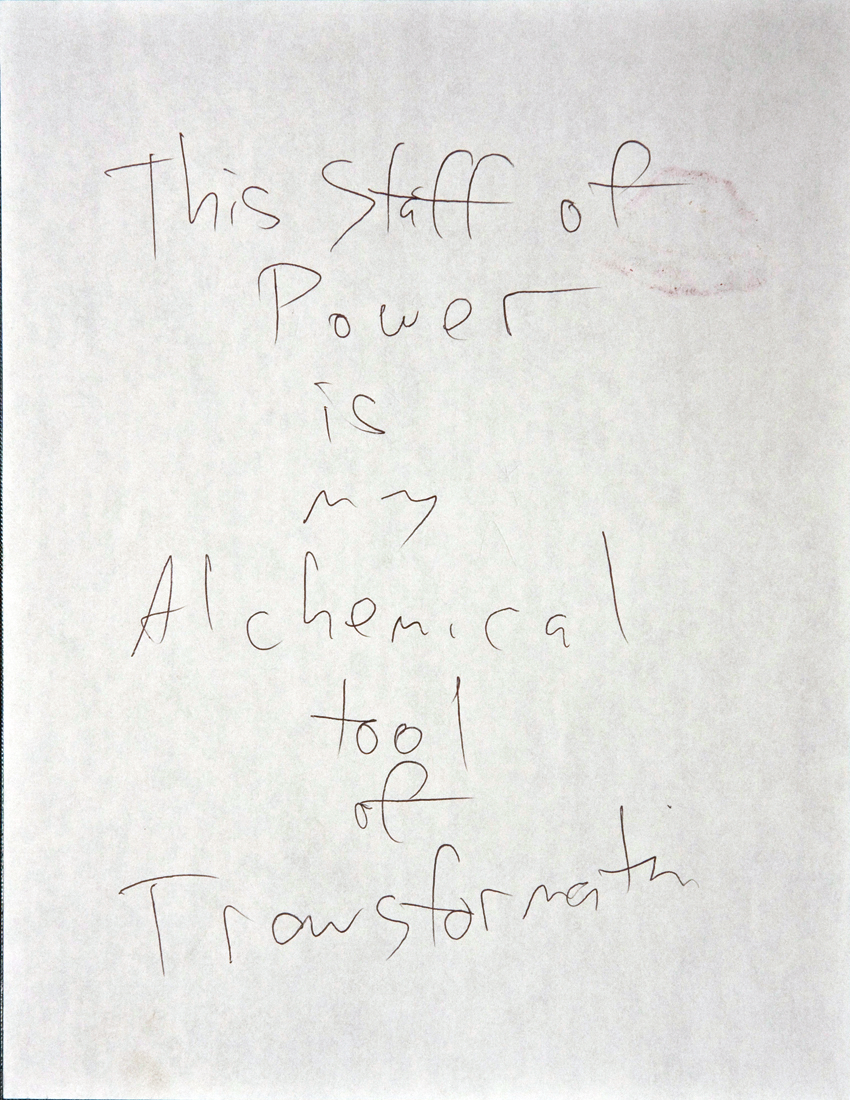 This Staff of
Power
is
my
Alchemical
tool
of
Transformation